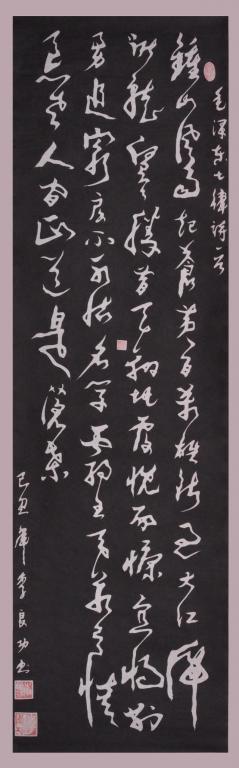 毛泽东七律诗一首
鍾山風雨起蒼黄百萬雄師過大江虎
踞龍盤今勝昔天翻地覆慨而慷宜將剩
勇追窮寇不可沽名學霸王天若有情
天亦老人间正道是蒼桑
己丑年李良功书